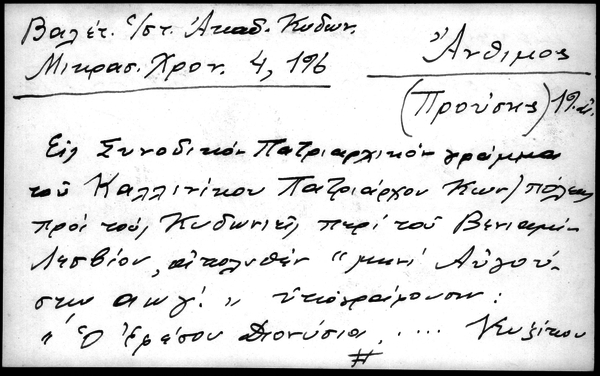 Βαλέτ. Ἑ/στ. Ἀκαδ. Κυδων.
Μικρασ. Χρον. 4, 196
Ἄνθιμος
(Προύσης) 19. αἰ.
Εἰς Συνοδικὸν Πατριαρχικὸν γράμμα
τοῦ Καλλινίκου Πατριάρχου Κων/πόλεως
πρὸς τοὺς Κυδωνιεῖς περὶ τοῦ Βενιαμὶν
Λεσβίου, ἀπολυθὲν "μηνὶ Αὐγού-
στῳ αωγ΄." ὑπογράφουσιν:
"Ὁ Ἐρέσου Διονύσιος, .... Κυζίκου